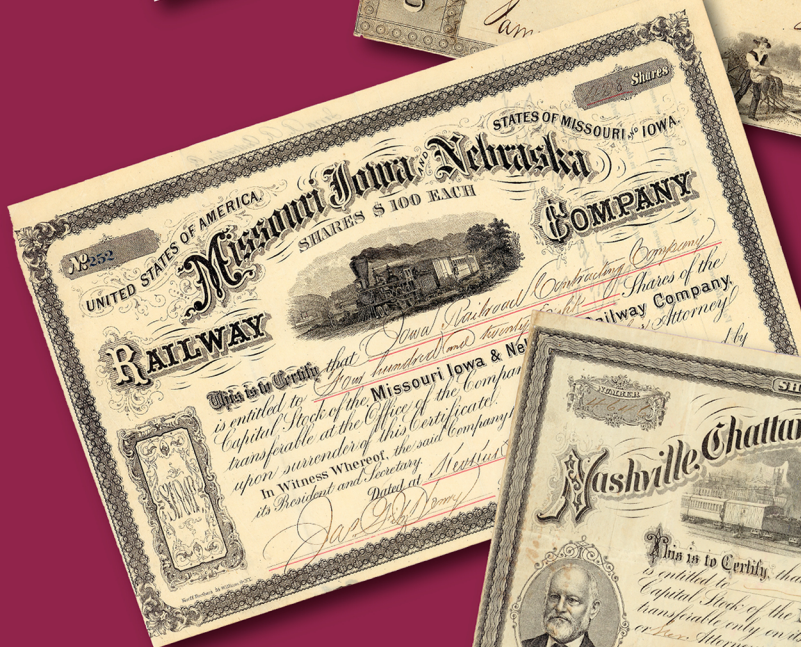 Shares
STATES OF MISSOURI AND IOWA.
No 252
UNITED STATES OF AMERICA.
Missouri Iowa AND Nebraska
SHARES $ 100 EACH
RAILWAY COMPANY
This is to Certify that Iowa Railroad Contracting Company
is entitled to Four hundred and twenty eight Shares of the
Capital Stock of the Missouri Iowa & Ne Railway Company.
transferable at the Office of the Compa Attorney
upon surrender of this Certificate. by
In Witness Whereof, the said Company
its President and Secretary.
Dated at
STAMP
NUMBER
Nashville, Chatta
This is to Certify, tha
is entitled to
Capital Stock of the
transferable only on
or Attorney